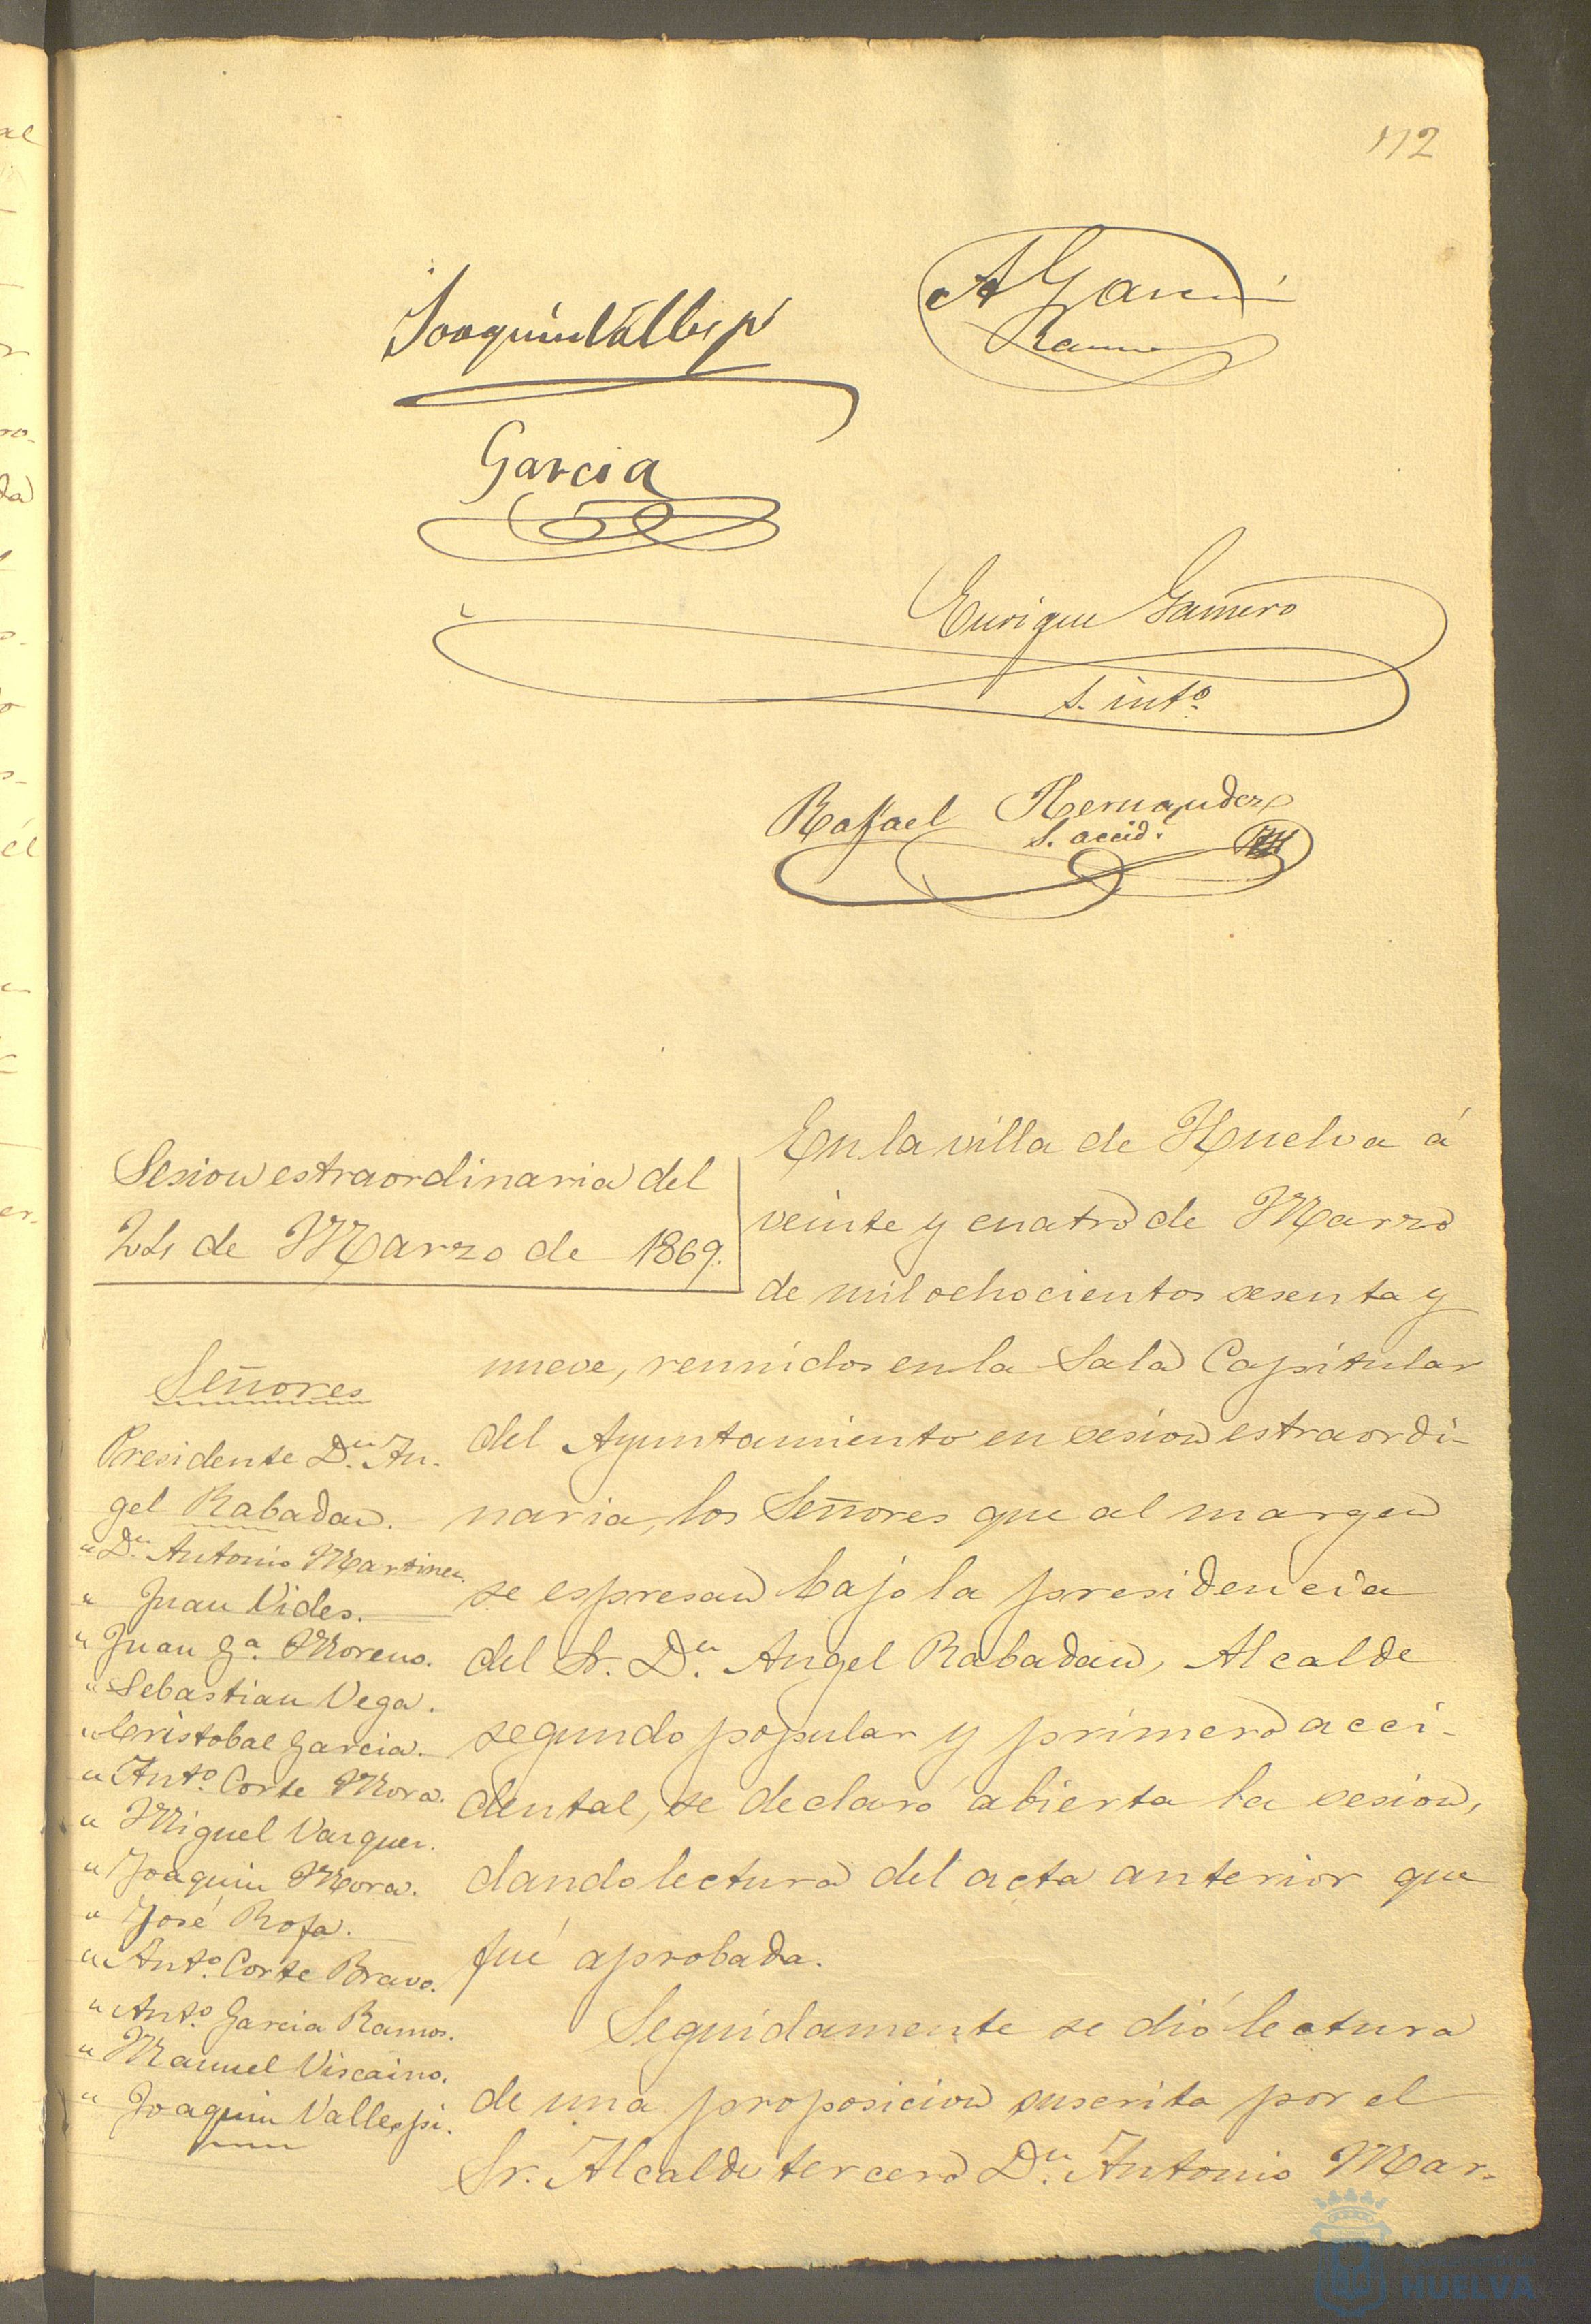 112
Joaquin Vallespi
A Garcia
Ramos
Garcia
Enrique Gamero
S. intº
Rafael Hernandez
S. accidl
Sesion estraordinaria del
24 de Marzo de 1869.
Señores
Presidente Dn. An-
gel Rabadan.
" Dn. Antonio Martinez.
" Juan Vides.
" Juan Ga. Moreno.
" Sebastian Vega.
" Cristobal Garcia.
" Antº. Corte Mora.
" Miguel Vazquez.
" Joaquin Mora.
" José Rofa.
" Antº. Corte Bravo.
" Antº. Garcia Ramos.
" Manuel Viscaino.
" Joaquin Vallespi.
En la villa de Huelva á
veinte y cuatro de Marzo
de mil ochocientos sesenta y
nueve, reunidos en la Sala Capitular
del Ayuntamiento en sesion estraordi-
naria, los Señores que al margen
se espresan bajo la presidencia
del Sr. Dn. Angel Rabadan, Alcalde
segundo popular y primero acci-
dental, se declaró abierta la sesion,
dando lectura del acta anterior que
fué aprobada.
Seguidamente se dió lectura
de una proposicion suscrita por el
Sr. Alcalde tercero Dn. Antonio Mar-
HUELVA